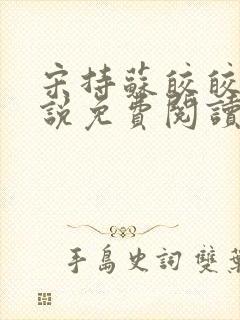 宋持蘇皎皎
說免費閱讀
手島史詞 雙葉